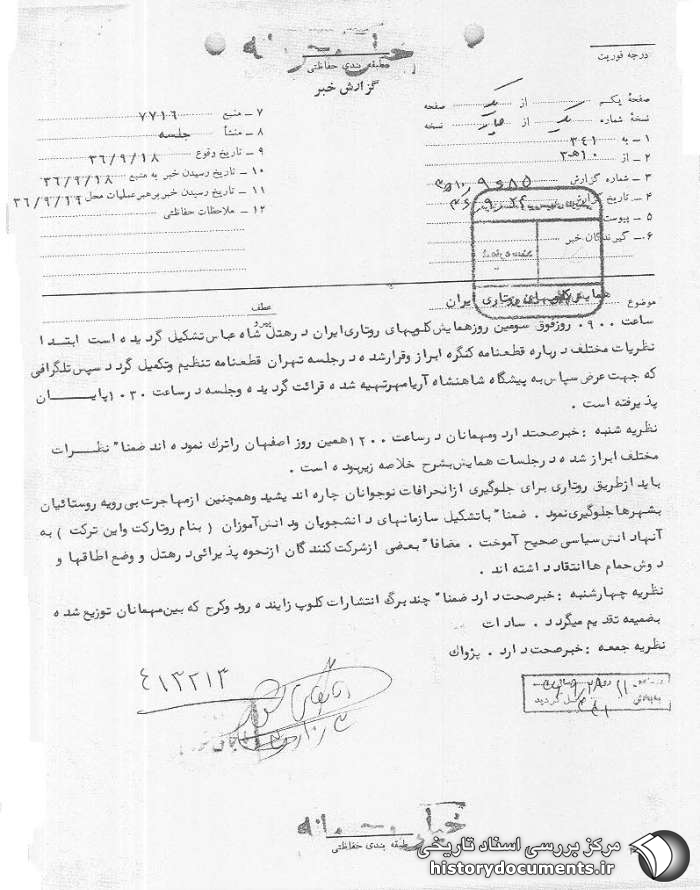 خیلی محرمانه
طبقه بندی حفاظتی
گزارش خبر
درجه فوریت
صفحهٔ یک از یک صفحه
نسخهٔ شماره یک از چهار نسخه
۱ ـ به ۳۴۱
۲ ـ از ۱۰هـ۳
۳ ـ شماره گزارش ۹۶۸۵/۱۰هـ۳
۴ ـ تاریخ گزارش
۵ ـ پیوست
۶ ـ گیرندگان خبر
۷ ـ منبع ۷۷۱۶
۸ ـ منشأ جلسه
۹ ـ تاریخ وقوع ۳۶/۹/۱۸
۱۰ ـ تاریخ رسیدن خبر به منبع ۳۶/۹/۱۸
۱۱ ـ تاریخ رسیدن خبر برهبر عملیات محل ۳۶/۹/۱۹
۱۲ ـ ملاحظات حفاظتی
موضوع همایش کلوپهای روتاری ایران
عطف
پیرو
ساعت ۰۹۰۰ روز فوق سومین روز همایش کلوپهای روتاری ایران در هتل شاه عباس تشکیل گردیده است ابتدا
نظریات مختلف درباره قطعنامه کنگره ابراز و قرار شده در جلسه تهران قطعنامه تنظیم و تکمیل گردد سپس تلگرافی
که جهت عرض سپاس به پیشگاه شاهنشاه آریامهر تهیه شده قرائت گردیده و جلسه در ساعت ۱۰۳۰ پایان
پذیرفته است .
نظریه شنبه : خبر صحت دارد و مهمانان در ساعت ۱۲۰۰ همین روز اصفهان را ترک نموده اند ضمنا" نظرات
مختلف ابراز شده در جلسات همایش بشرح خلاصه زیر بوده است .
باید از طریق روتاری برای جلوگیری از انحرافات نوجوانان چاره اندیشید و همچنین از مهاجرت بی رویه روستائیان
بشهرها جلوگیری نمود . ضمنا" با تشکیل سازمانهای دانشجویان و دانش آموزان ( بنام روتارکت و این ترکت ) به
آنها دانش سیاسی صحیح آموخت . مضافا" بعضی از شرکت کنندگان از نحوه پذیرائی در هتل و وضع اطاقها و
دوش حمام ها انتقاد داشته اند .
نظریه چهارشنبه : خبر صحت دارد ضمنا" چند برگ انتشارات کلوپ زاینده رود و کرج که بین مهمانان توزیع شده
بضمیمه تقدیم میگردد . سادات
نظریه جمعه : خبر صحت دارد . پژواک
۴۱۳۲۱۳
خیلی محرمانه
طبقه بندی حفاظتی
مرکز بررسی اسناد تاریخی
historydocuments.ir